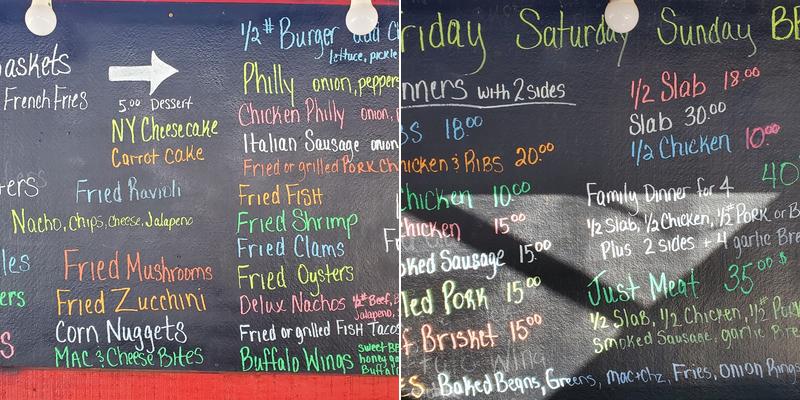 French Fries
5.00 Dessert
NY Cheesecake
Carrot Cake
Fried Ravioli
Nacho, Chips, Cheese, Jalapeno
Fried Mushrooms
Fried Zucchini
Corn Nuggets
Mac & Cheese Bites
1/2# Burger add
lettuce, pickle
Philly onion, peppers
Chicken Philly onion,
Italian Sausage onion
Fried or grilled Pork
Fried Fish
Fried Shrimp
Fried Clams
Fried Oysters
Delux Nachos 1/2# Beef,
Jalapeno,
Fried or grilled Fish Tacos
Buffalo Wings sweet
honey
Buffalo
Saturday Sunday
with 2 sides
18.00
& Ribs 20.00
Chicken 10.00
15.00
Sausage 15.00
Pork 15.00
Brisket 15.00
1/2 Slab 18.00
Slab 30.00
1/2 Chicken 10.00
Family Dinner for 4 40
1/2 Slab, 1/2 Chicken, 1/2# Pork or
Plus 2 sides + 4 garlic
Just Meat 35.00 $
1/2 Slab, 1/2 Chicken, 1/2# Pork
Smoked Sausage, garlic
Baked Beans, Greens, Mac+Chz, Fries, Onion Rings